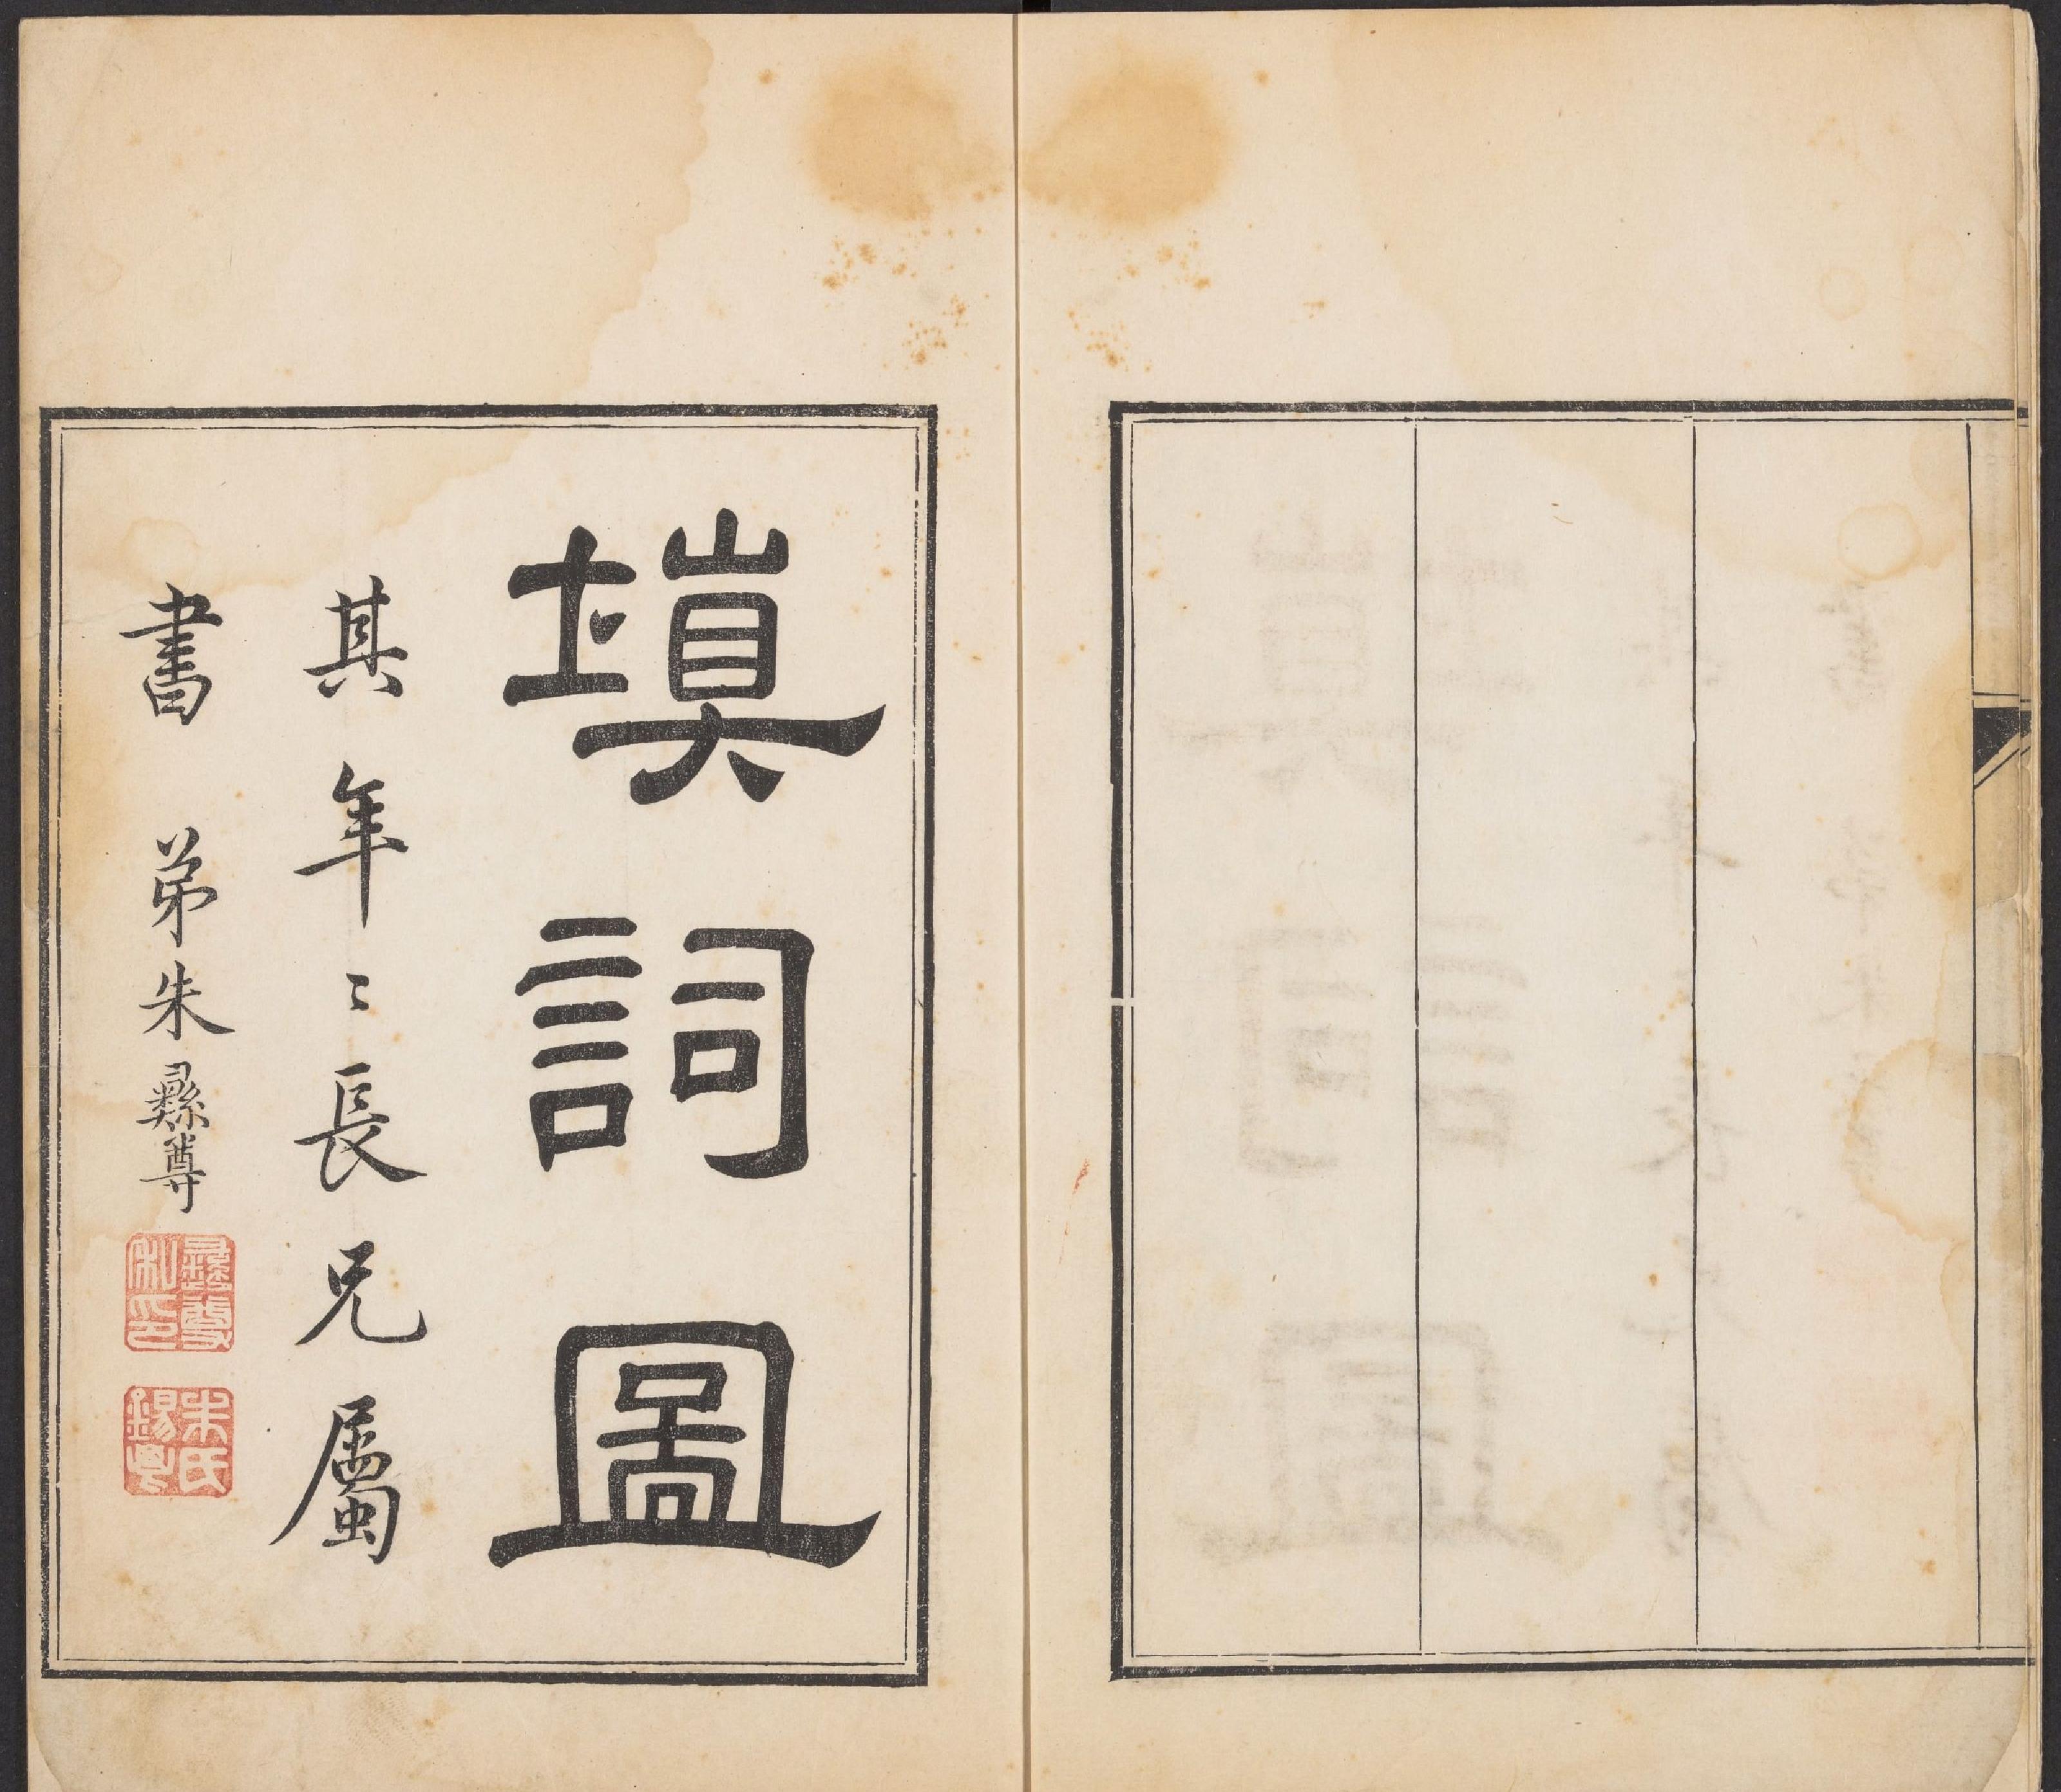 填詞圖
其年〻長兄屬
書 弟朱彝尊
彝尊私印
朱氏錫鬯